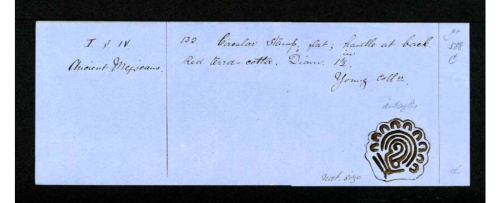 I & IV
Ancient Mexicans.
132 Circular Stamp, flat; handle at back.
Red terra-cotta. Diam. 1¾ in.
Young Colln.
Nat. size